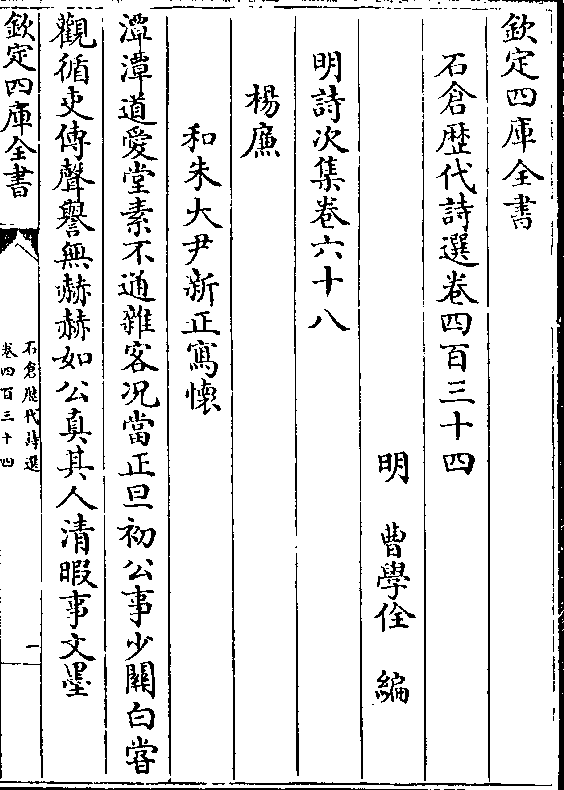 欽定四庫全書
石倉歴代詩選卷四百三十四
明　曹學佺　編
明詩次集卷六十八
楊廉
和朱大尹新正寫懐
潭潭道愛堂素不通雜客况當正旦初公事少關白嘗
觀循吏傳聲譽無赫赫如公真其人清暇事文墨
欽定四庫全書
石倉歴代詩選
卷四百三十四
一